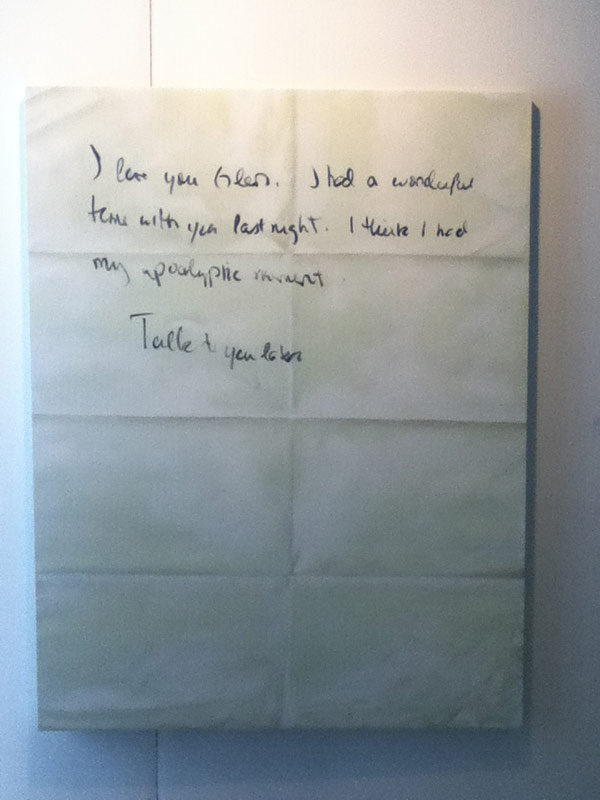 I love you Glen. I had a wonderful
time with you last night. I think I had
my apocalyptic moment
Talk to you later